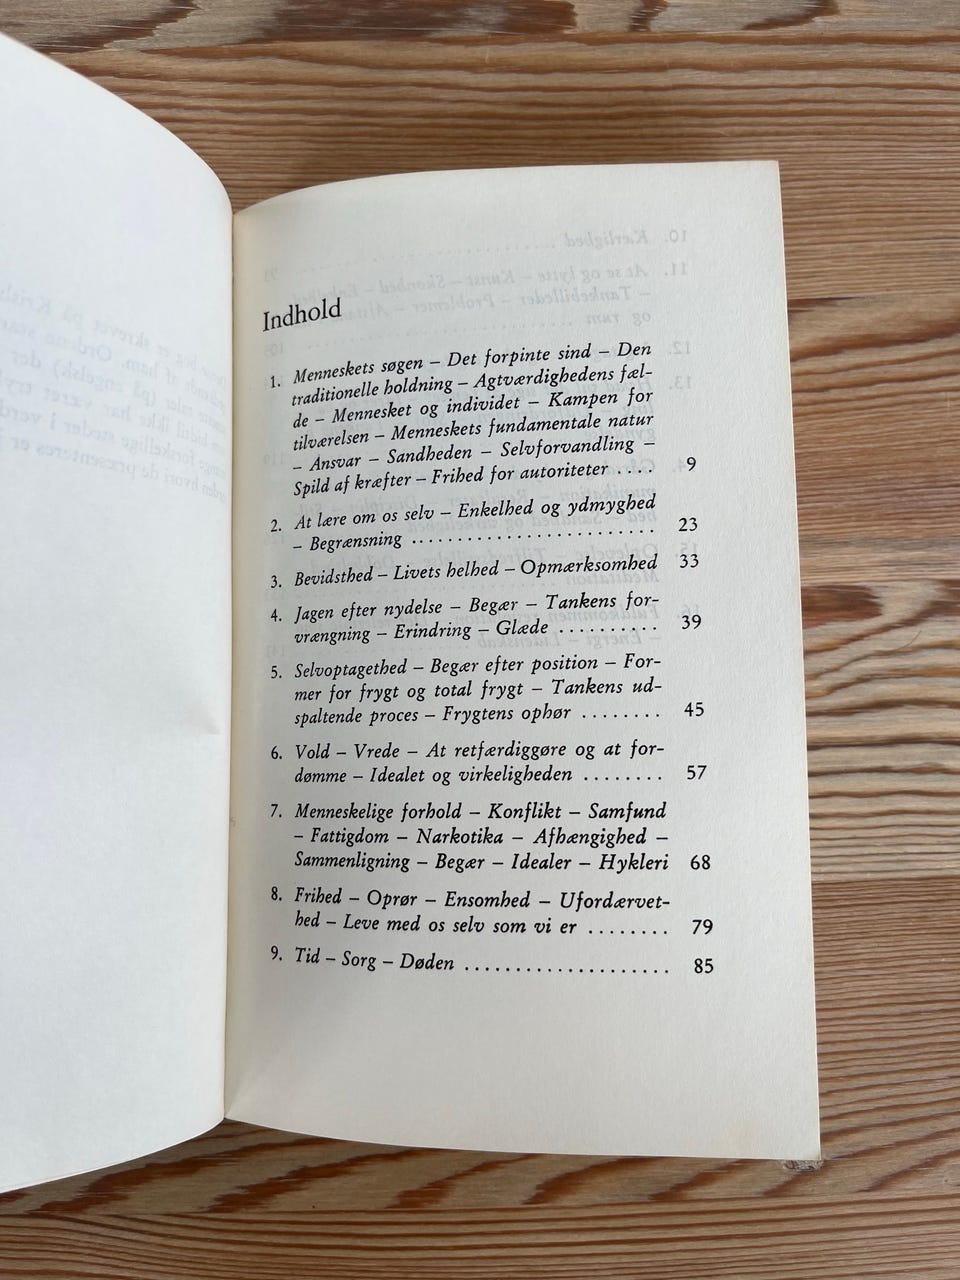 Indhold
1. Menneskets søgen – Det forpinte sind – Den
traditionelle holdning – Agtværdighedens fæl-
de – Mennesket og individet – Kampen for
tilværelsen – Menneskets fundamentale natur
– Ansvar – Sandheden – Selvforvandling –
Spild af kræfter – Frihed for autoriteter ..... 9
2. At lære om os selv – Enkelhed og ydmyghed
– Begrænsning ........................ 23
3. Bevidsthed – Livets helhed – Opmærksomhed 33
4. Jagen efter nydelse – Begær – Tankens for-
vrængning – Erindring – Glæde .......... 39
5. Selvoptagethed – Begær efter position – For-
mer for frygt og total frygt – Tankens ud-
spaltende proces – Frygtens ophør ........ 45
6. Vold – Vrede – At retfærdiggøre og at for-
dømme – Idealet og virkeligheden ........ 57
7. Menneskelige forhold – Konflikt – Samfund
– Fattigdom – Narkotika – Afhængighed –
Sammenligning – Begær – Idealer – Hykleri 68
8. Frihed – Oprør – Ensomhed – Ufordærvet-
hed – Leve med os selv som vi er ........ 79
9. Tid – Sorg – Døden .................... 85